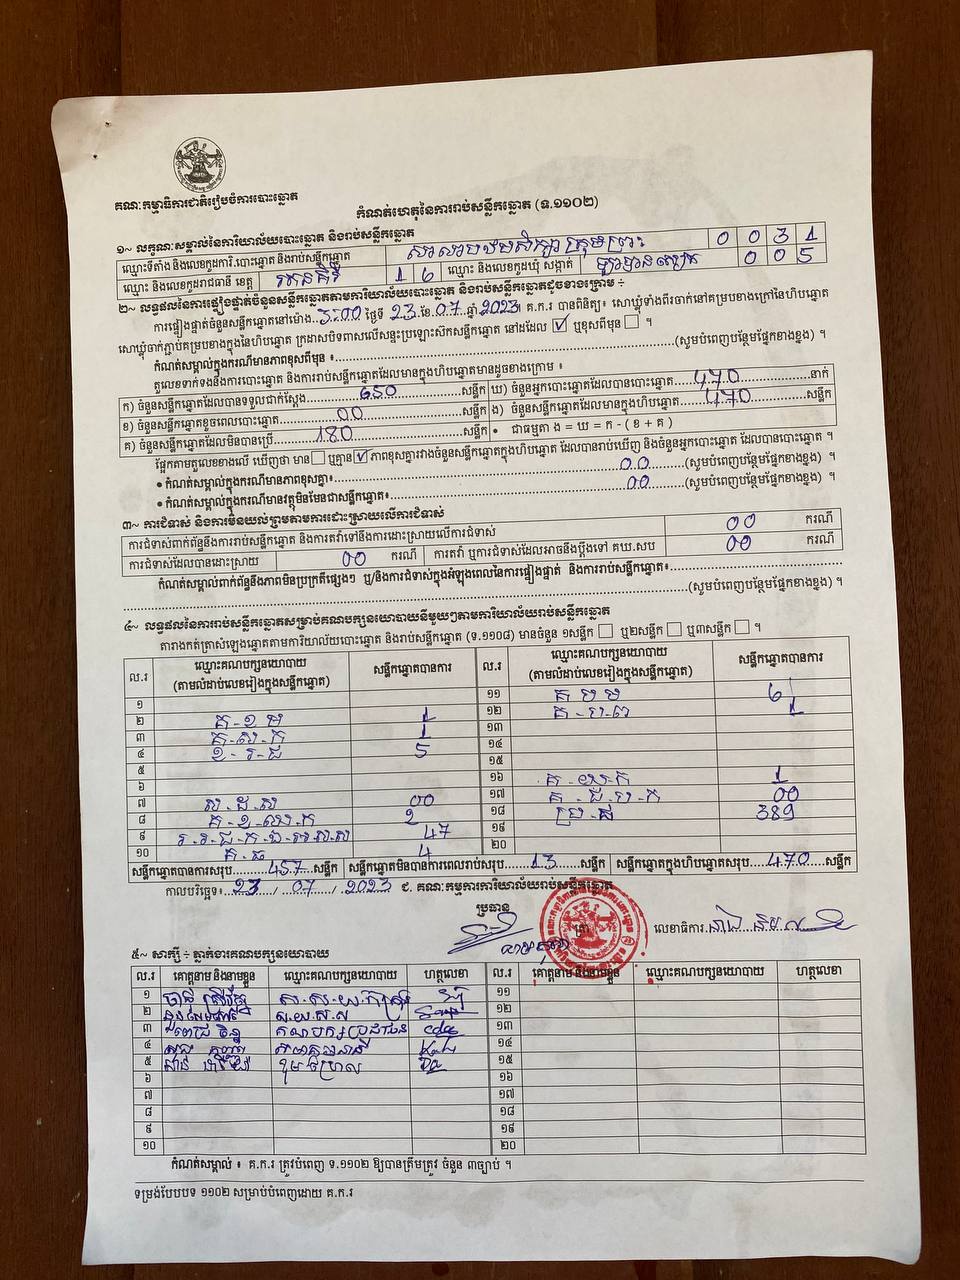 គណៈកម្មាធិការជាតិរៀបចំការបោះឆ្នោត
កំណត់ហេតុនៃការរាប់សន្លឹកឆ្នោត (ទ.១១០២)
១~ លក្ខណៈសម្គាល់នៃការិយាល័យបោះឆ្នោត និងរាប់សន្លឹកឆ្នោត
ឈ្មោះទីតាំង និងលេខកូដការិ.បោះឆ្នោត និងរាប់សន្លឹកឆ្នោត សាលាបឋមសិក្សា ក្រុមព្រះ 0 0 3 1
ឈ្មោះ និងលេខកូដរាជធានី ខេត្ត រតនគិរី 1 6 ឈ្មោះ និងលេខកូដឃុំ សង្កាត់ 0 0 5
២~ លទ្ធផលនៃការផ្ទៀងផ្ទាត់ចំនួនសន្លឹកឆ្នោតតាមការិយាល័យបោះឆ្នោត និងរាប់សន្លឹកឆ្នោតដូចខាងក្រោម ÷
ការផ្ទៀងផ្ទាត់ចំនួនសន្លឹកឆ្នោតនៅម៉ោង 3:00 ថ្ងៃទី 23 ខែ 07 ឆ្នាំ 2023 គ.ក.រ បានពិនិត្យ៖ សោឃ្លុំទាំងពីរចាក់នៅគម្របខាងក្រៅនៃហិបឆ្នោត
សោឃ្លុំចាក់ភ្ជាប់គម្របខាងក្នុងនៃហិបឆ្នោត ក្រដាសបិទពាសលើសន្ទះប្រឡោះស៊កសន្លឹកឆ្នោត នៅដដែល ☑ ឬខុសពីមុន ☐ ។
កំណត់សម្គាល់ក្នុងករណីមានភាពខុសពីមុន ៖ (សូមបំពេញបន្ថែមផ្នែកខាងខ្នង) ។
តួលេខទាក់ទងនឹងការបោះឆ្នោត និងការរាប់សន្លឹកឆ្នោតដែលមានក្នុងហិបឆ្នោតមានដូចខាងក្រោម ៖
ក) ចំនួនសន្លឹកឆ្នោតដែលបានទទួលជាក់ស្តែង 650 សន្លឹក ឃ) ចំនួនអ្នកបោះឆ្នោតដែលបានបោះឆ្នោត 470 នាក់
ខ) ចំនួនសន្លឹកឆ្នោតខូចពេលបោះឆ្នោត 00 សន្លឹក ង) ចំនួនសន្លឹកឆ្នោតដែលមានក្នុងហិបឆ្នោត 470 សន្លឹក
គ) ចំនួនសន្លឹកឆ្នោតដែលមិនបានប្រើ 180 សន្លឹក • ជាធម្មតា ង = ឃ = ក - ( ខ + គ )
ផ្អែកតាមតួលេខខាងលើ ឃើញថា មាន ☐ ឬគ្មាន ☑ ភាពខុសគ្នារវាងចំនួនសន្លឹកឆ្នោតក្នុងហិបឆ្នោត ដែលបានរាប់ឃើញ និងចំនួនអ្នកបោះឆ្នោត ដែលបានបោះឆ្នោត ។
• កំណត់សម្គាល់ក្នុងករណីមានភាពខុសគ្នា៖ 00 (សូមបំពេញបន្ថែមផ្នែកខាងខ្នង) ។
• កំណត់សម្គាល់ក្នុងករណីមានវត្ថុមិនមែនជាសន្លឹកឆ្នោត៖ 00 (សូមបំពេញបន្ថែមផ្នែកខាងខ្នង) ។
៣~ ការជំទាស់ និងការមិនយល់ព្រមតាមការដោះស្រាយលើការជំទាស់
ការជំទាស់ពាក់ព័ន្ធនឹងការរាប់សន្លឹកឆ្នោត និងការតវ៉ាទៅនឹងការដោះស្រាយលើការជំទាស់ 00 ករណី
ការជំទាស់ដែលបានដោះស្រាយ 00 ករណី ការតវ៉ា ឬការជំទាស់ដែលអាចនឹងប្តឹងទៅ គឃ.សប 00 ករណី
កំណត់សម្គាល់ពាក់ព័ន្ធនឹងភាពមិនប្រក្រតីផ្សេងៗ ឬ/និងការជំទាស់ក្នុងអំឡុងពេលនៃការផ្ទៀងផ្ទាត់ និងការរាប់សន្លឹកឆ្នោត៖
(សូមបំពេញបន្ថែមផ្នែកខាងខ្នង) ។
៤~ លទ្ធផលនៃការរាប់សន្លឹកឆ្នោតសម្រាប់គណបក្សនយោបាយនីមួយៗតាមការិយាល័យរាប់សន្លឹកឆ្នោត
តារាងកត់ត្រាសំឡេងឆ្នោតតាមការិយាល័យបោះឆ្នោត និងរាប់សន្លឹកឆ្នោត (ទ.១១០៨) មានចំនួន ១សន្លឹក ☐ ឬ២សន្លឹក ☐ ឬ៣សន្លឹក ☐ ។
ល.រ ឈ្មោះគណបក្សនយោបាយ (តាមលំដាប់លេខរៀងក្នុងសន្លឹកឆ្នោត) សន្លឹកឆ្នោតបានការ ល.រ ឈ្មោះគណបក្សនយោបាយ (តាមលំដាប់លេខរៀងក្នុងសន្លឹកឆ្នោត) សន្លឹកឆ្នោតបានការ
១ ១១ គ ម ម 6
២ គ-ខ-ម 1 ១២ គ-ប-ព 1
៣ គ-ស-ក 1 ១៣
៤ ខ-រ-ជ 5 ១៤
៥ ១៥
៦ ១៦ គ-យ-ក 1
៧ ស-ដ-ស 00 ១៧ គ-ជ-ប-ក 00
៨ គ-ខ-ឈ-ក 2 ១៨ ប្រ-ជ 389
៩ 47 ១៩
១០ គ-ធ 4 ២០
សន្លឹកឆ្នោតបានការសរុប 457 សន្លឹក សន្លឹកឆ្នោតមិនបានការពេលរាប់សរុប 13 សន្លឹក សន្លឹកឆ្នោតក្នុងហិបឆ្នោតសរុប 470 សន្លឹក
កាលបរិច្ឆេទ៖ 23 / 07 / 2023 ជ. គណៈកម្មការការិយាល័យរាប់សន្លឹកឆ្នោត
ប្រធាន
ត្រា លេខាធិការ
៥~ សាក្សី ÷ ភ្នាក់ងារគណបក្សនយោបាយ
ល.រ គោត្តនាម និងនាមខ្លួន ឈ្មោះគណបក្សនយោបាយ ហត្ថលេខា ល.រ គោត្តនាម និងនាមខ្លួន ឈ្មោះគណបក្សនយោបាយ ហត្ថលេខា
១ ១១
២ ១២
៣ គណបក្សប្រជាជន ១៣
៤ ១៤
៥ ១៥
៦ ១៦
៧ ១៧
៨ ១៨
៩ ១៩
១០ ២០
កំណត់សម្គាល់ ៖ គ.ក.រ ត្រូវបំពេញ ទ.១១០២ ឱ្យបានត្រឹមត្រូវ ចំនួន ៣ច្បាប់ ។
ទម្រង់បែបបទ ១១០២ សម្រាប់បំពេញដោយ គ.ក.រ